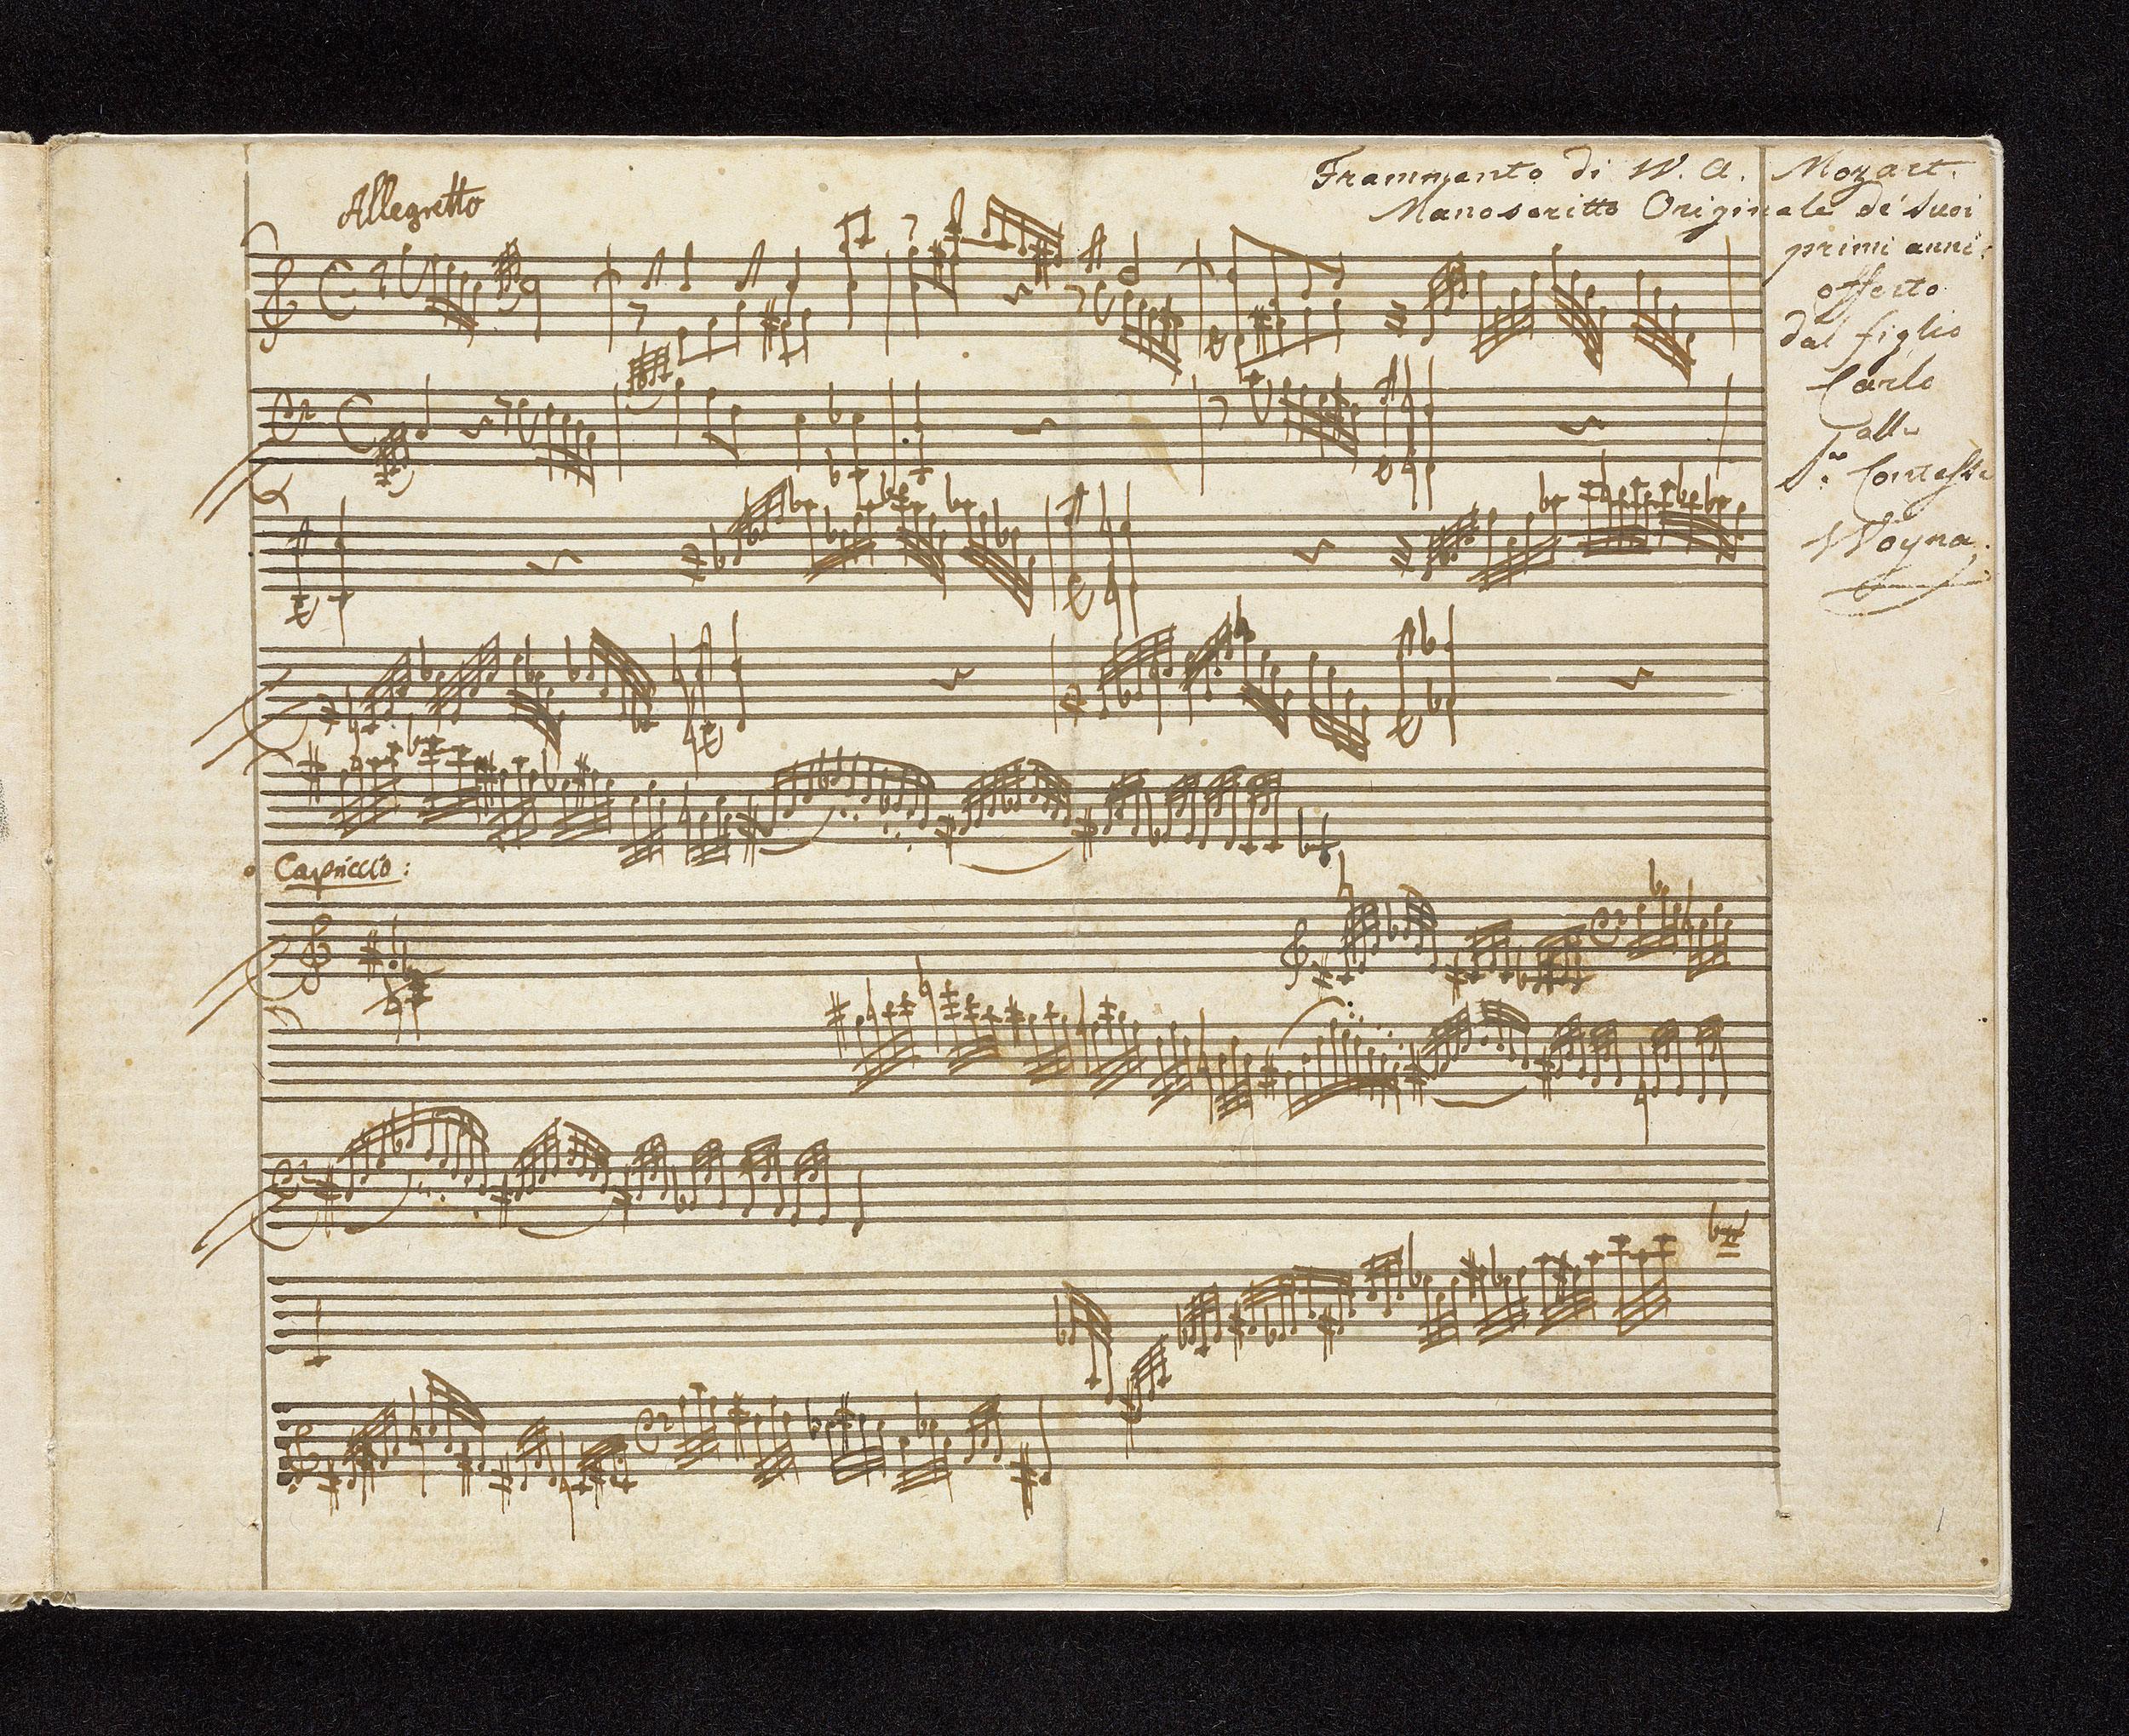 Allegretto
Frammento di W. A. Mozart.
Manoscritto Originale de' suoi
primi anni.
offerto
dal figlio
Carlo
alla
Sra. Contessa
Woyna.
Capriccio:
1